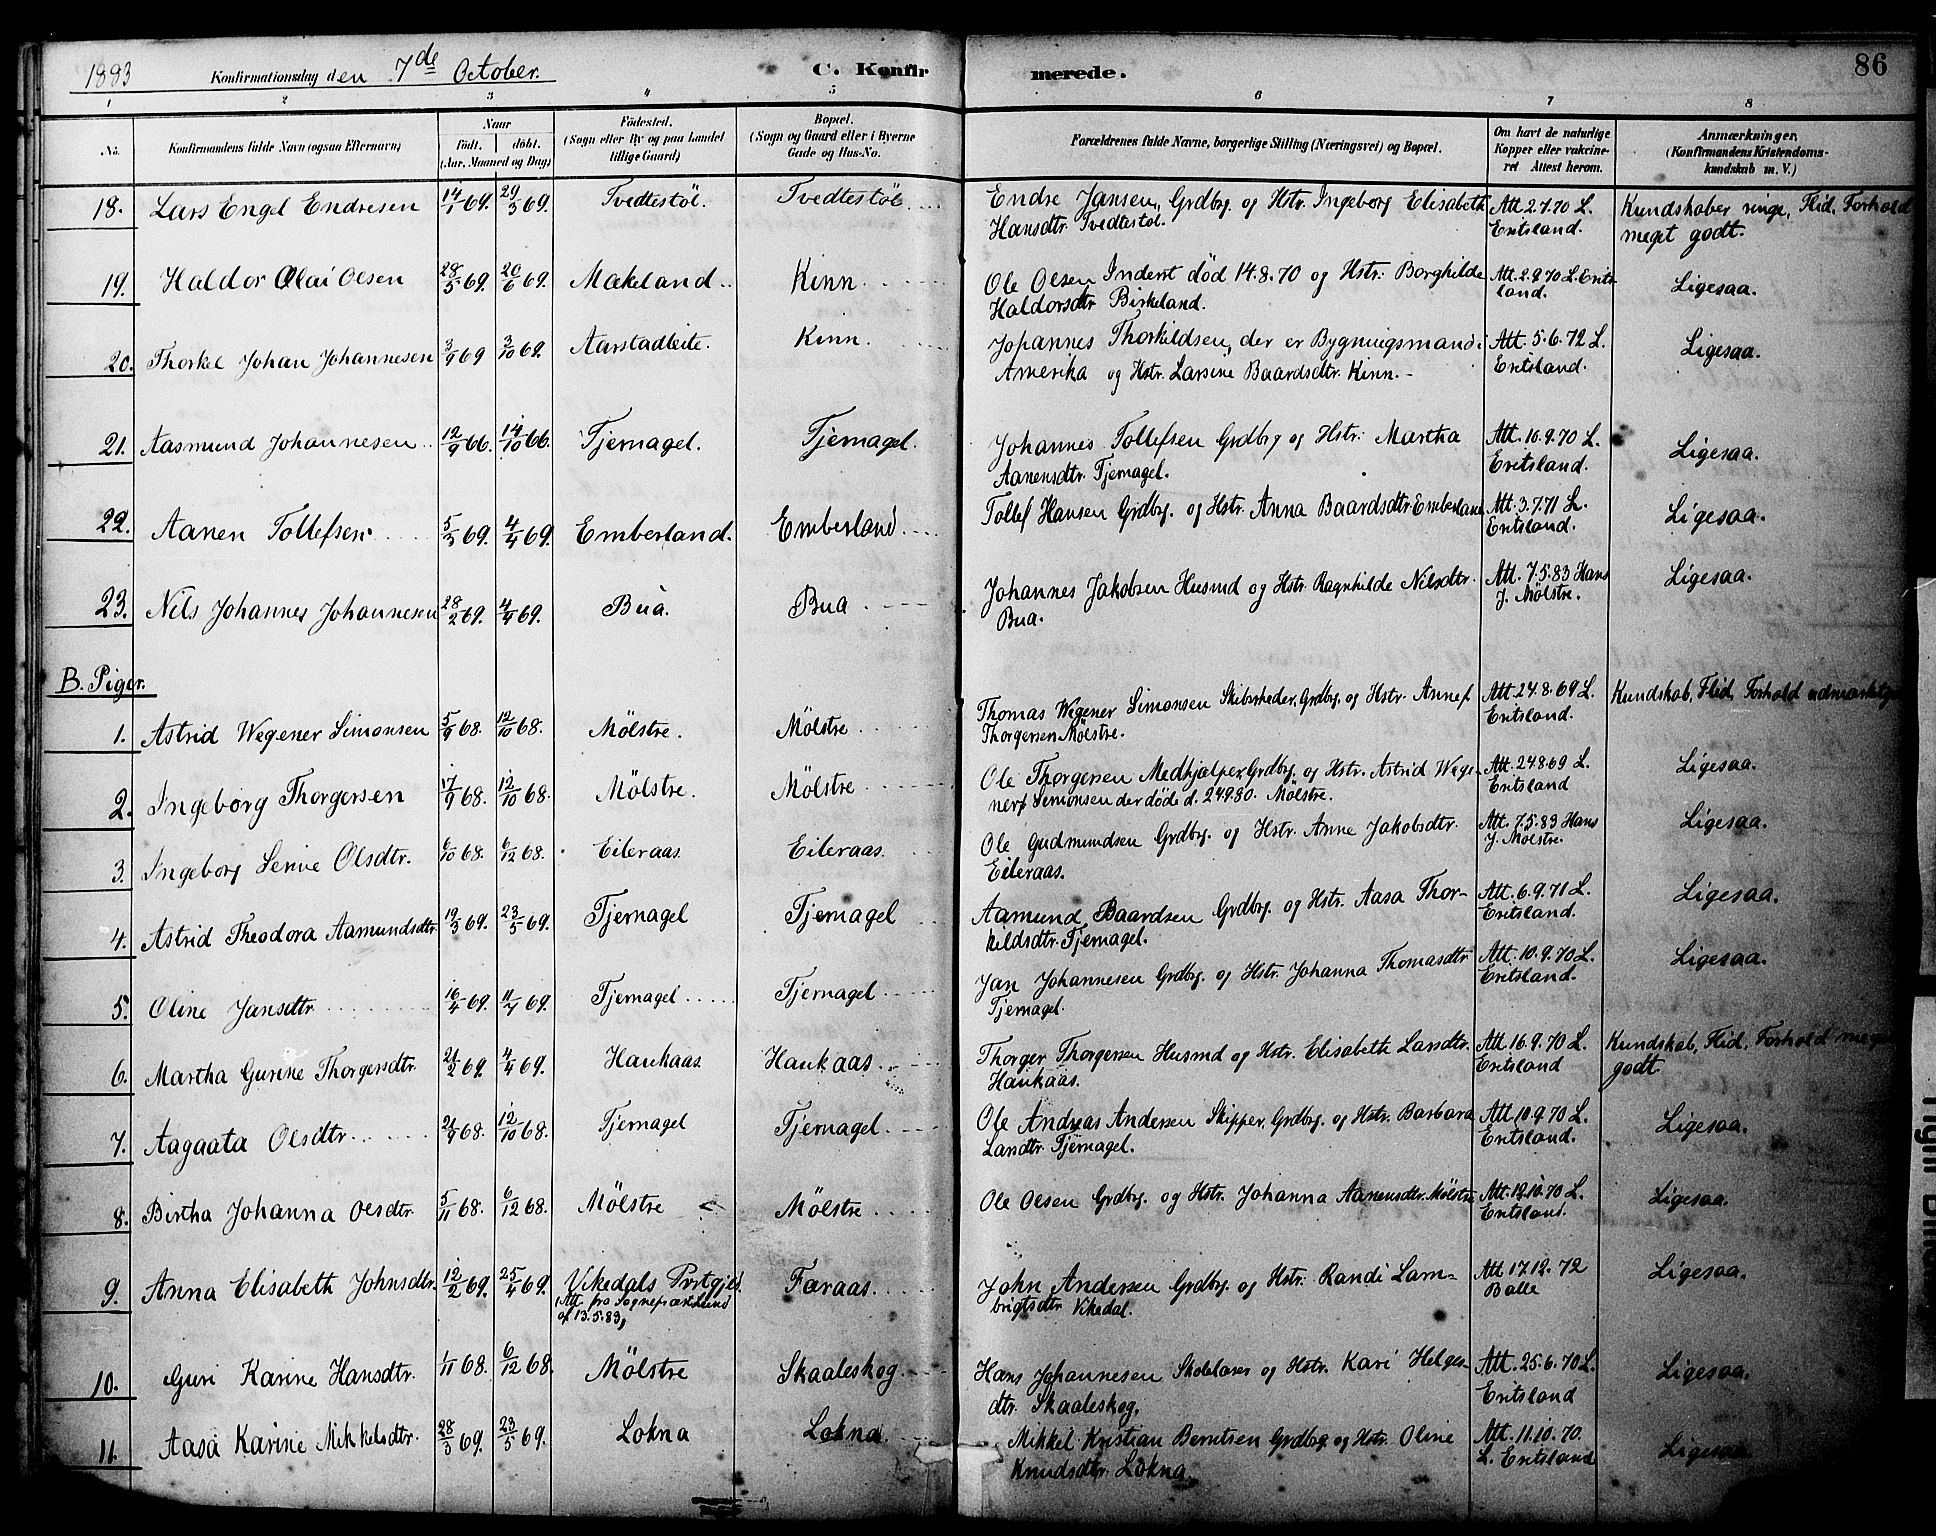 1883 Konfirmationsdag den 7de October. C. Konfirmerede. 86
1 2 3 4 5 6 7 8
No. Konfirmandens fulde Navn (ogsaa Efternavn) Naar født. døbt. (Aar, Maaned og Dag) Fødested. (Sogn eller By og paa Landet tillige Gaard) Bopæl. (Sogn og Gaard eller i Byerne Gade og Hus-No. Forældrenes fulde Navne, borgerlige Stilling (Næringsvei) og Bopæl. Om havt de naturlige Kopper eller vakcineret Attest herom. Anmærkninger, (Konfirmandens Kristendomskundskab m. V.)
18. Lars Engel Endresen 14/1 69. 29/3 69. Tvedtestöl Tvedtestöl Endre Jansen, Grdbrg. og Hstr. Ingeborg Elisabeth Att. 2.7.70 L. Kundskaber ringe, Flid, Forhold
Hansdtr. Tvedtestöl. Eritsland. meget godt.
19. Haldor Olai Olsen 28/5 69. 20/6 69. Mækeland Kinn Ole Olsen Inderst död 14.8.70 og Hstr: Borghilde Att. 2.9.70 L. Erits- Ligesaa.
Haldorsdtr Birkeland. land.
20. Thorkel Johan Johannesen 3/9 69 3/10 69. Aarstadleite. Kinn. Johannes Thorkildsen, der er Bygningsmand i Att. 5.6.72 L. Ligesaa.
Amerika og Hstr. Larsine Baardsdtr. Kinn. Eritsland.
21. Aasmund Johannesen 12/9 66. 14/10 66. Tjernagel. Tjernagel. Johannes Tollefsen Grdbrg og Hstr: Martha Att. 10.9.70 L. Ligesaa.
Aanensdtr. Tjernagel. Eritsland.
22. Aanen Tollefsen 5/3 69. 4/4 69. Emberland. Emberland. Tollef Hansen Grdbrg. og Hstr. Anna Baardsdtr Emberland Att. 3.7.71 L. Ligesaa.
Eritsland.
23. Nils Johannes Johannesen 28/2 69. 4/4 69. Bua. Bua Johannes Jakobsen Husmd og Hstr. Ragnhilde Nilsdtr. Att. 7.5.83 Hans Ligesaa.
Bua. J. Mölstre.
B. Piger.
1. Astrid Wegener Simonsen 5/9 68. 12/10 68. Mölstre. Mölstre Thomas Wegener Simonsen Skibsrheder, Grdbrg. og Hstr. Anne f. Att. 24.8.69 L. Kundskab, Flid, Forhold
Thorgersen Mölstre. Eritsland.
2. Ingeborg Thorgersen 17/9 68. 12/10 68. Mölstre. Mölstre Ole Thorgersen Medhjælper, Grdbrg. og Hstr. Astrid Wege- Att. 24.8.69 L. Ligesaa.
ner f. Simonsen der döde d. 24.9.80. Mölstre. Eritsland
3. Ingeborg Serine Olsdtr. 6/10 68. 6/12 68. Eileraas. Eileraas. Ole Gudmundsen Grdbrg. og Hstr. Anne Jakobsdtr. Att. 7.5.83 Hans Ligesaa.
Eileraas. J. Mölstre.
4. Astrid Theodora Aamundsdtr. 19/3 69. 23/5 69. Tjernagel Tjernagel Aamund Baardsen Grdbrg. og Hstr. Aasa Thor- Att. 6.9.71 L. Ligesaa.
kildsdtr. Tjernagel. Eritsland.
5. Oline Jansdtr. 16/4 69. 11/7 69. Tjernagel Tjernagel Jan Johannesen Grdbrg. og Hstr. Johanna Thomasdtr Att. 10.9.70 L. Ligesaa.
Tjernagel. Eritsland.
6. Martha Gurine Thorgersdtr. 21/2 69. 4/4 69. Haukaas Haukaas. Thorger Thorgersen Husmd og Hstr. Elisabeth Larsdtr. Att 16.9.70 L. Kundskab, Flid, Forhold meget
Haukaas. Eritsland godt.
7. Aagaata Olsdtr. 21/9 68. 12/10 68. Tjernagel Tjernagel. Ole Andreas Andersen Skipper, Grdbrg. og Hstr. Barbara Att. 10.9.70 L. Ligesaa.
Larsdtr. Tjernagel. Eritsland.
8. Birtha Johanna Olsdtr. 5/11 68. 6/12 68. Mölstre Mölstre Ole Olsen Grdbrg. og Hstr. Johanna Aanensdtr. Mölstre Att. 12.10.70 L. Ligesaa.
Eritsland.
9. Anna Elisabeth Johnsdtr. 12/2 69. 25/4 69. Vikedals Prstgjld. Færaas. John Andersen Grdbrg. og Hstr: Randi Lam- Att 17.12.72 Ligesaa.
(Att. fra Sognepræst Lund brigtsdtr. Vikedal. Balle
af 13.5.83)
10. Guri Karine Hansdtr. 1/11 68. 6/12 68. Mölstre Skaaleskog. Hans Johannesen Skolelærer og Hstr. Kari Helges- Att. 25.6.70 L. Ligesaa.
dtr. Skaaleskog. Eritsland
11. Aasa Karine Mikkelsdtr. 28/3 69. 23/5 69. Lokna Lokna Mikkel Kristian Berntsen Grdbrg. og Hstr. Oline Att. 11.10.70. Ligesaa
Knudsdtr. Lokna L. Eritsland